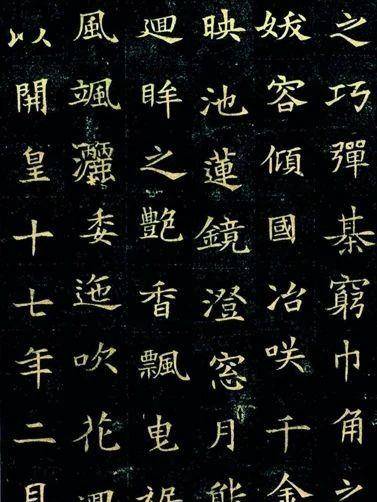 之巧彈棊窮巾角之
妖容傾國冶咲千金
映池蓮鏡澄窓月態
迴眸之艷香飄曳裾
風颯灑委迤吹花迴
以開皇十七年二月